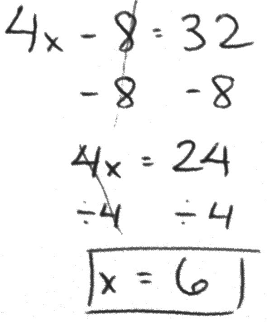 4x - 8 = 32
- 8 - 8
4x = 24
÷4 ÷ 4
x = 6